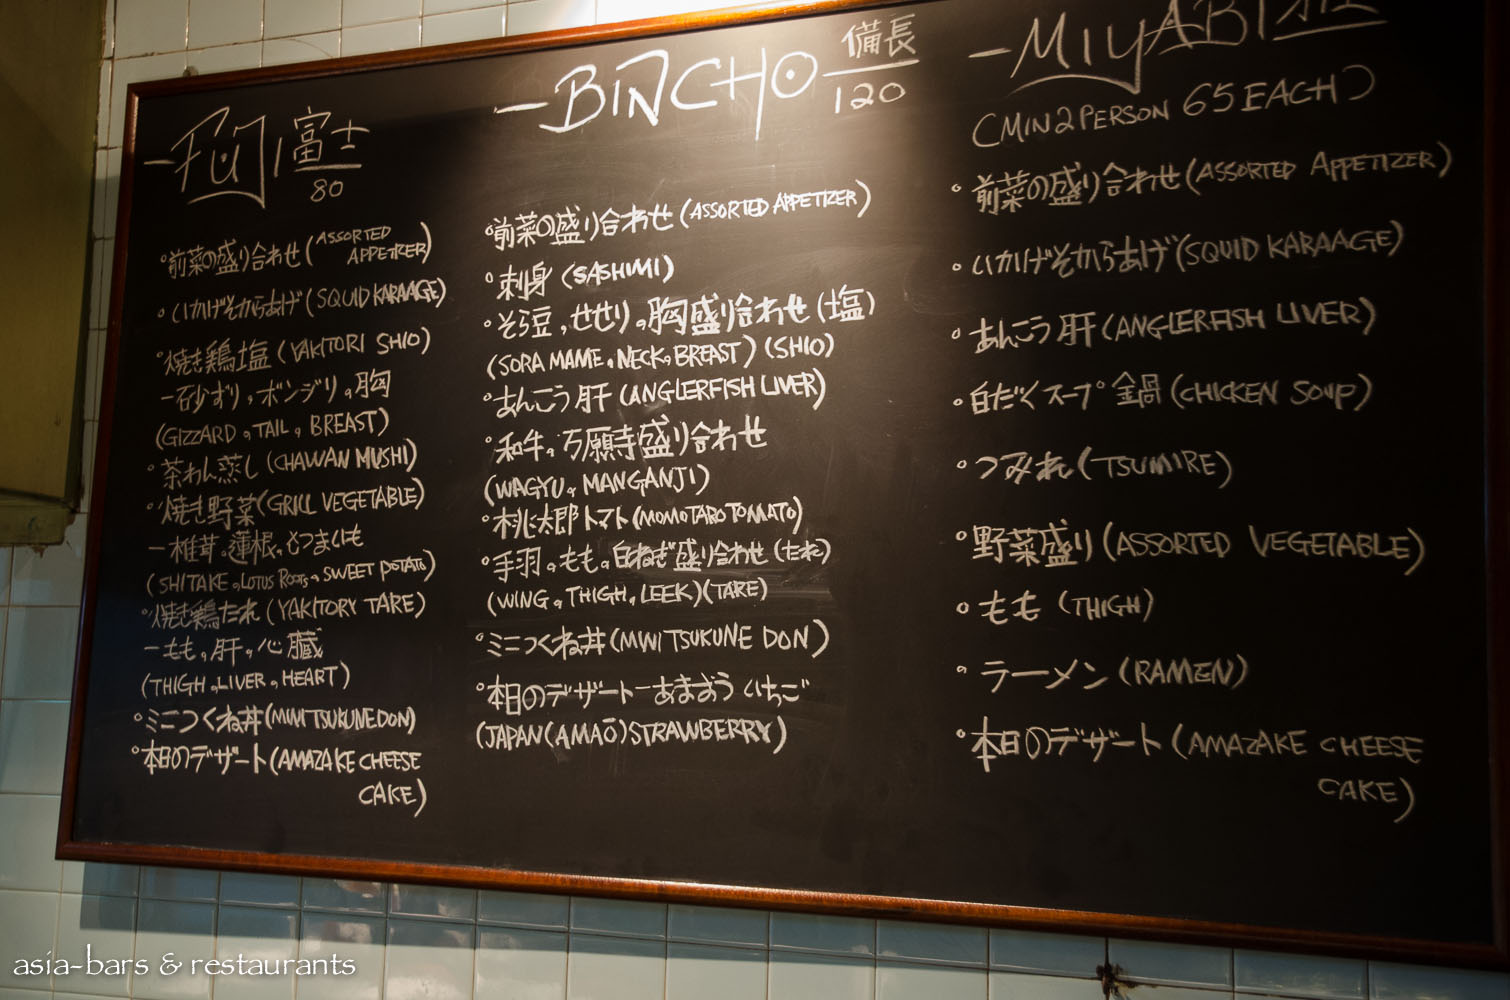 -FUJI 富士
80
°前菜の盛り合わせ (ASSORTED
APPETIZER)
°いかげそからあげ (SQUID KARAAGE)
°焼き鶏塩 (YAKITORI SHIO)
-砂ずり,ボンジリ。胸
(GIZZARD, TAIL, BREAST)
°茶わん蒸し (CHAWAN MUSHI)
°焼き野菜 (GRILL VEGETABLE)
-椎茸。蓮根。さつまいも
(SHITAKE, LOTUS ROOTS, SWEET POTATO)
°焼き鶏たれ (YAKITORY TARE)
-もも。肝。心臓
(THIGH, LIVER, HEART)
°ミニつくね丼 (MINI TSUKUNE DON)
°本日のデザート (AMAZAKE CHEESE
CAKE)
-BINCHO 備長
120
°前菜の盛り合わせ (ASSORTED APPETIZER)
°刺身 (SASHIMI)
°そら豆,せせり。胸盛り合わせ (塩)
(SORA MAME, NECK, BREAST) (SHIO)
°あんこう肝 (ANGLERFISH LIVER)
°和牛。万願寺盛り合わせ
(WAGYU, MANGANJI)
°桃太郎トマト (MOMOTARO TOMATO)
°手羽。もも。白ねぎ盛り合わせ (たれ)
(WING, THIGH, LEEK) (TARE)
°ミニつくね丼 (MINI TSUKUNE DON)
°本日のデザートーあまおういちご
(JAPAN (AMAŌ) STRAWBERRY)
-MIYABI 雅
(MIN 2 PERSON 65 EACH)
°前菜の盛り合わせ (ASSORTED APPETIZER)
°いかげそからあげ (SQUID KARAAGE)
°あんこう肝 (ANGLERFISH LIVER)
°白だくスープ鍋 (CHICKEN SOUP)
°つみれ (TSUMIRE)
°野菜盛り (ASSORTED VEGETABLE)
°もも (THIGH)
°ラーメン (RAMEN)
°本日のデザート (AMAZAKE CHEESE
CAKE)
asia-bars & restaurants